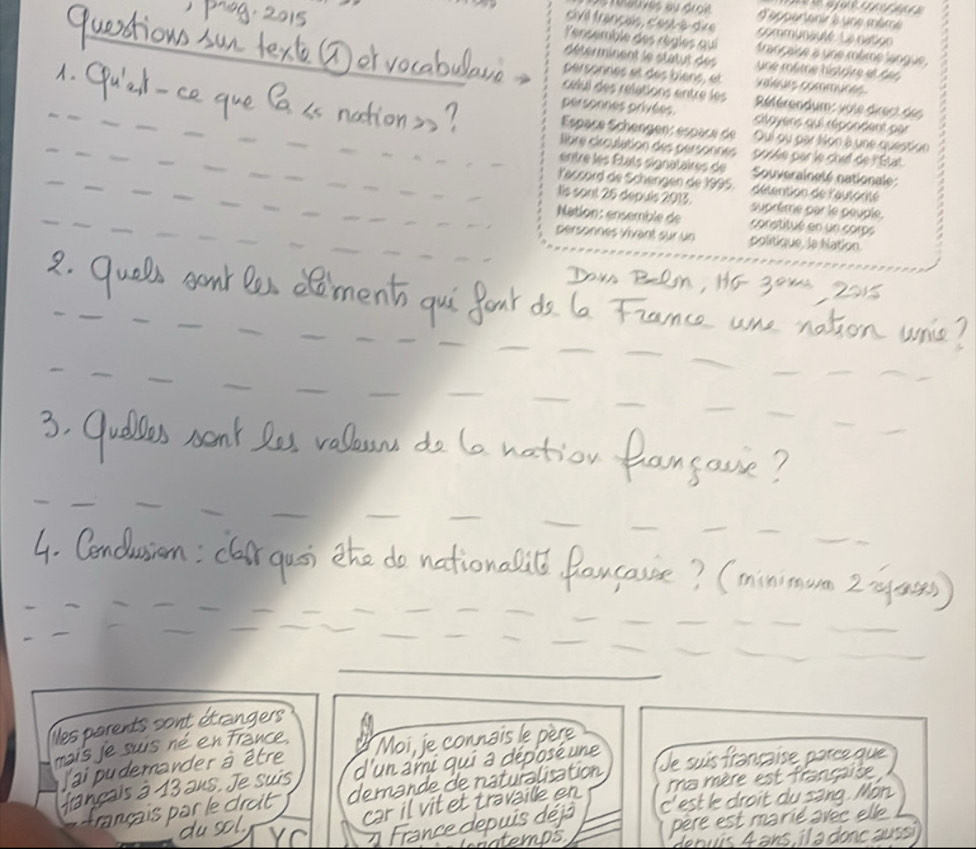 , prog. 2015
Questions sur texte ② et vocabulaire →
1. Qu'est-ce que la « nation » ?
2. Quels sont les éléments qui font de la France une nation unie ?
3. Quelles sont les valeurs de la nation française ?
4. Conclusion : c'est quoi être de nationalité française ? (minimum 2 réponses)
au droit
civil français, c'est-à-dire
l'ensemble des règles qui
déterminent le statut des
personnes et des biens, et
celui des relations entre les
personnes privées.
Espace Schengen: espace de
libre circulation des personnes
entre les États signataires de
l'accord de Schengen de 1995.
Ils sont 26 depuis 2013.
Nation: ensemble de
personnes vivant sur un
ayant conscience
d'appartenir à une même
communauté. La nation
française a une même langue,
une même histoire et des
valeurs communes.
Référendum: vote direct des
citoyens qui répondent par
Oui ou par Non à une question
posée par le chef de l'État.
Souveraineté nationale:
détention de l'autorité
suprême par le peuple,
constitué en un corps
politique, la Nation.
Dans Belin, HG 3eme, 2015
Mes parents sont étrangers
mais je suis né en France.
J'ai pu demander à être
français à 13 ans. Je suis
français par le droit
du sol.
Moi, je connais le père
d'un ami qui a déposé une
demande de naturalisation
car il vit et travaille en
France depuis déjà
longtemps.
Je suis française parce que
ma mère est française,
c'est le droit du sang. Mon
père est marié avec elle
depuis 4 ans, il a donc aussi